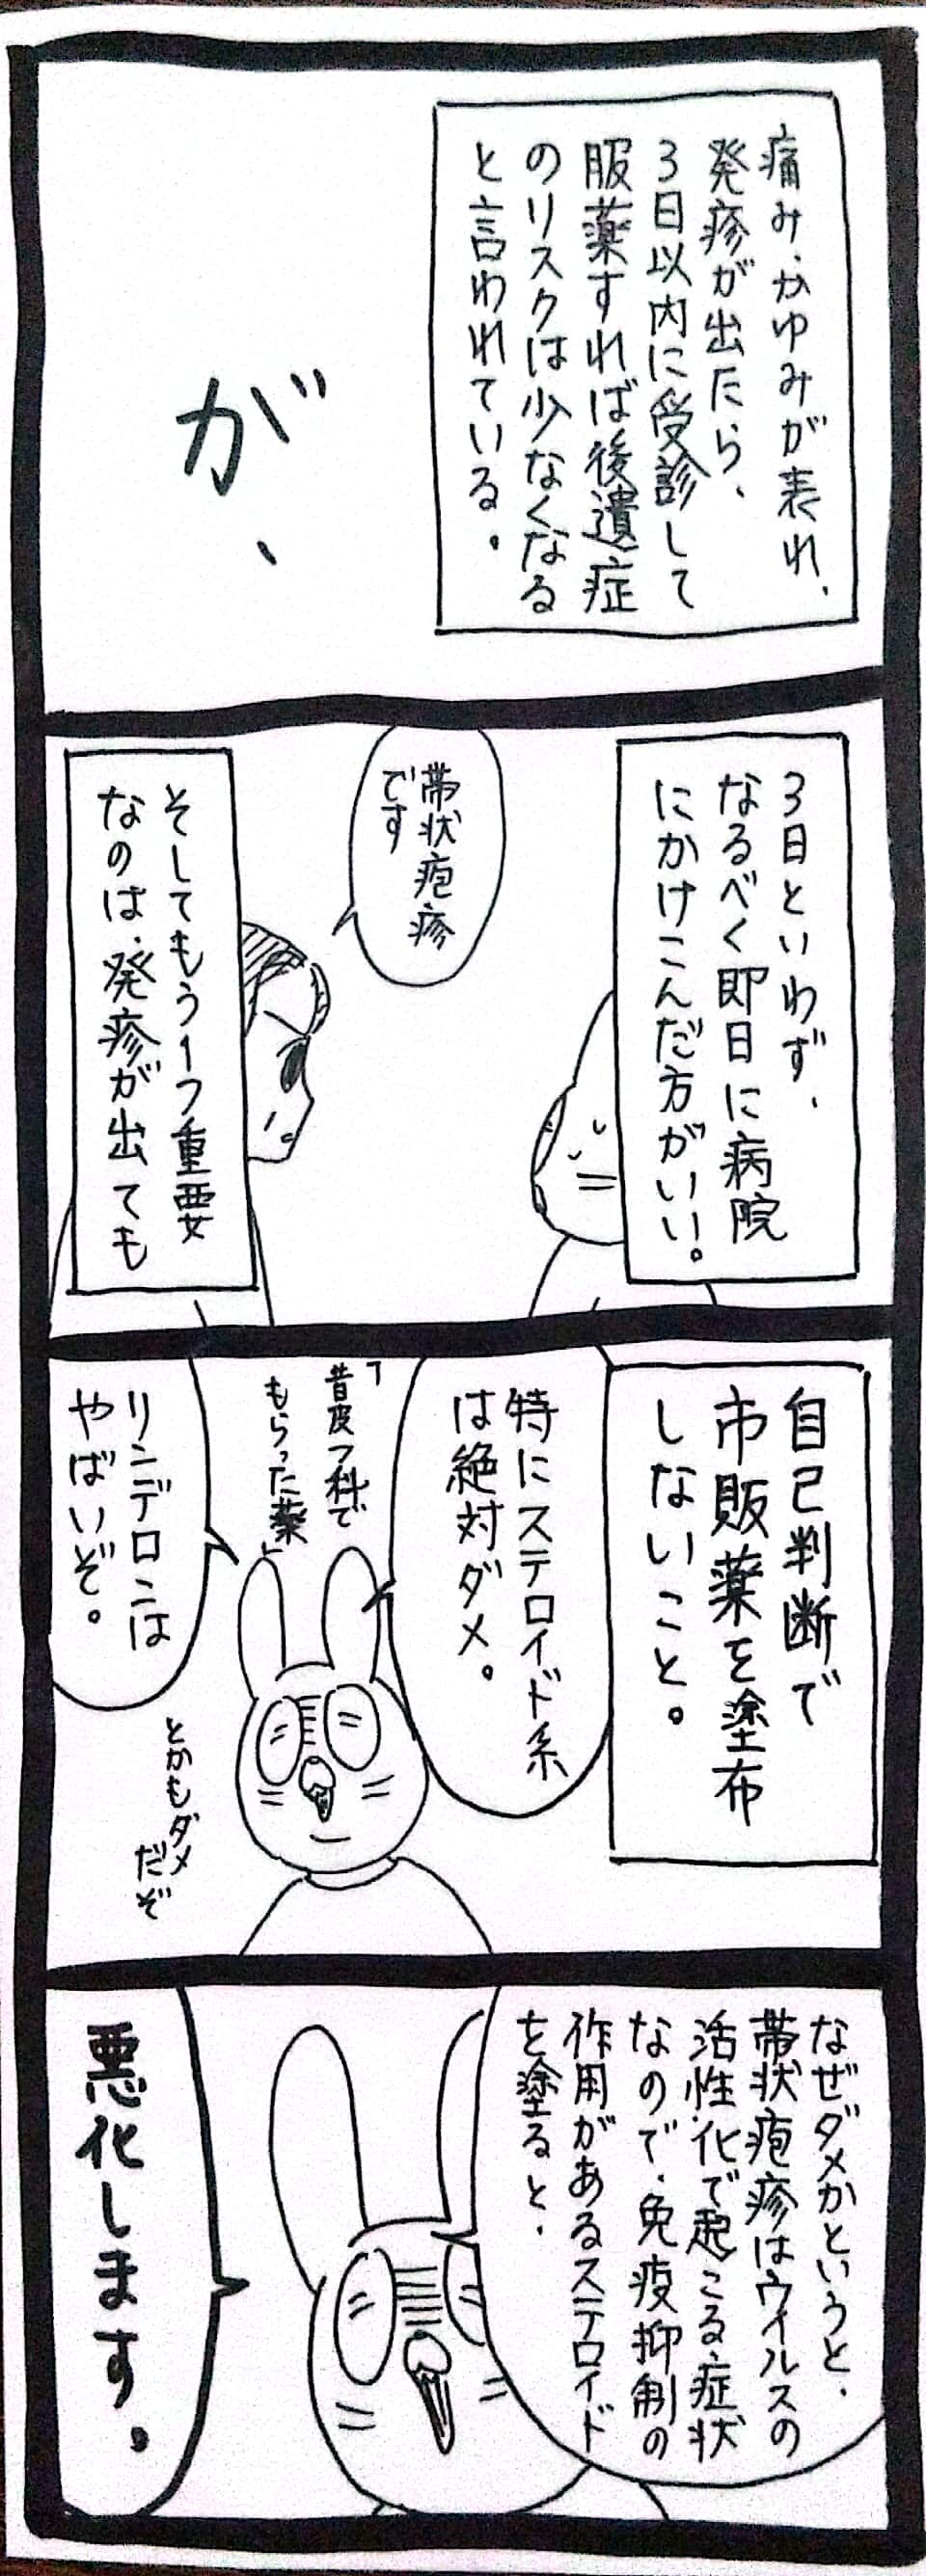 痛み、かゆみが表れ、
発疹が出たら、
3日以内に受診して
服薬すれば後遺症
のリスクは少なくなる
と言われている。
が、
3日といわず、
なるべく即日に病院
にかけこんだ方がいい。
帯状疱疹
です
そしてもう1つ重要
なのは、発疹が出ても
自己判断で
市販薬を塗布
しないこと。
特にステロイド系
は絶対ダメ。
「昔皮フ科で
もらった薬」
リンデロンは
やばいぞ。
とかもダメ
だぞ
なぜダメかというと、
帯状疱疹はウイルスの
活性化で起こる症状
なので、免疫抑制の
作用があるステロイド
を塗ると、
悪化します。